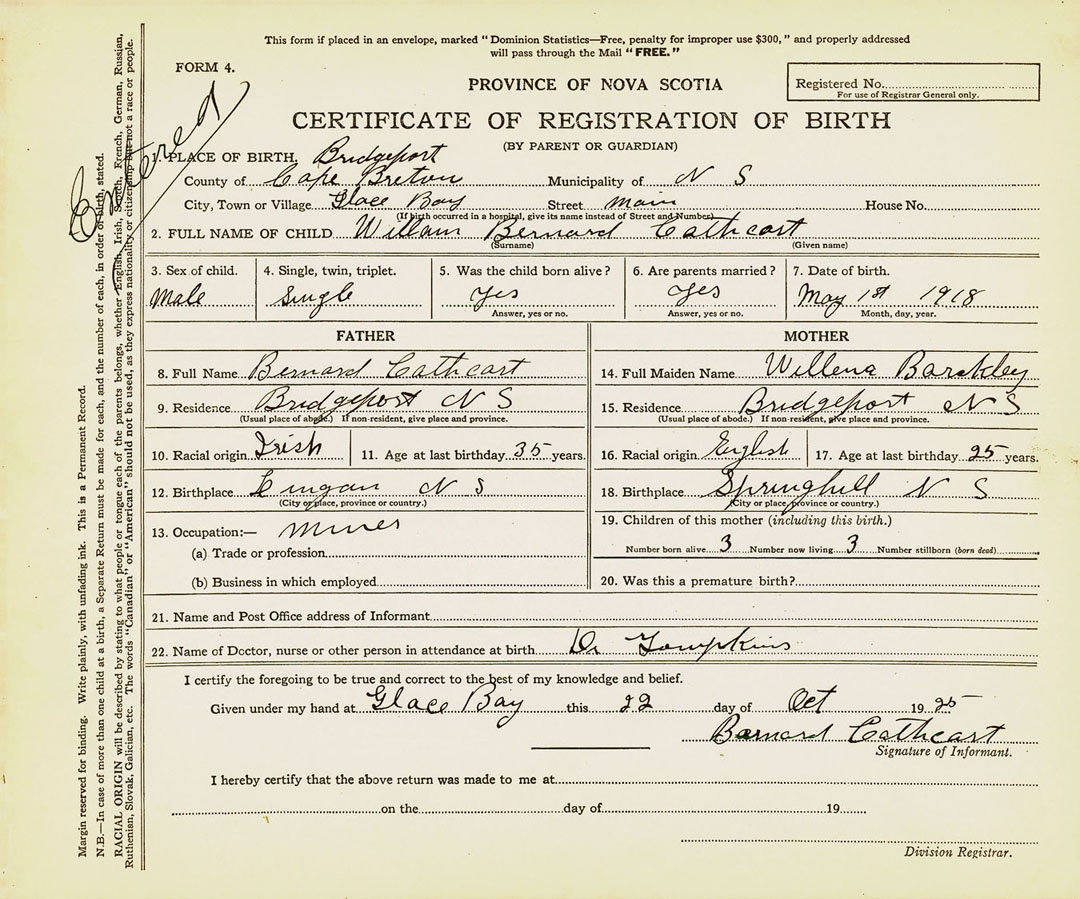 This form if placed in an envelope, marked "Dominion Statistics—Free, penalty for improper use $300," and properly addressed
will pass through the Mail "FREE."
FORM 4.
PROVINCE OF NOVA SCOTIA
Registered No.
For use of Registrar General only.
CERTIFICATE OF REGISTRATION OF BIRTH
(BY PARENT OR GUARDIAN)
Entered
PLACE OF BIRTH, Bridgeport
County of Cape Breton Municipality of N S
City, Town or Village Glace Bay Street main House No.
(If birth occurred in a hospital, give its name instead of Street and Number)
2. FULL NAME OF CHILD William Bernard Cathcart
(Surname) (Given name)
3. Sex of child. 4. Single, twin, triplet. 5. Was the child born alive? 6. Are parents married? 7. Date of birth.
Male Single Yes Yes May 1st 1918
Answer, yes or no. Answer, yes or no. Month, day, year.
FATHER MOTHER
8. Full Name Bernard Cathcart 14. Full Maiden Name Willena Barckley
9. Residence Bridgeport N S 15. Residence Bridgeport N S
(Usual place of abode.) If non-resident, give place and province. (Usual place of abode.) If non-resident, give place and province.
10. Racial origin Irish 11. Age at last birthday 35 years. 16. Racial origin English 17. Age at last birthday 25 years.
12. Birthplace Lingan N S 18. Birthplace Springhill N S
(City or place, province or country.) (City or place, province or country.)
13. Occupation:— miner 19. Children of this mother (including this birth.)
(a) Trade or profession Number born alive 3 Number now living 3 Number stillborn (born dead)
(b) Business in which employed 20. Was this a premature birth?
21. Name and Post Office address of Informant
22. Name of Doctor, nurse or other person in attendance at birth Dr Tompkins
I certify the foregoing to be true and correct to the best of my knowledge and belief.
Given under my hand at Glace Bay this 22 day of Oct 1925
Barnard Cathcart
Signature of Informant.
I hereby certify that the above return was made to me at
on the day of 19
Division Registrar.
Margin reserved for binding. Write plainly, with unfading ink. This is a Permanent Record.
N.B.—In case of more than one child at a birth, a Separate Return must be made for each, and the number of each, in order of birth, stated.
RACIAL ORIGIN will be described by stating to what people or tongue each of the parents belongs, whether English, Irish, Scotch, French, German, Russian,
Ruthenian, Slovak, Galician, etc. The words "Canadian" or "American" should not be used, as they express nationality or citizenship but not a race or people.